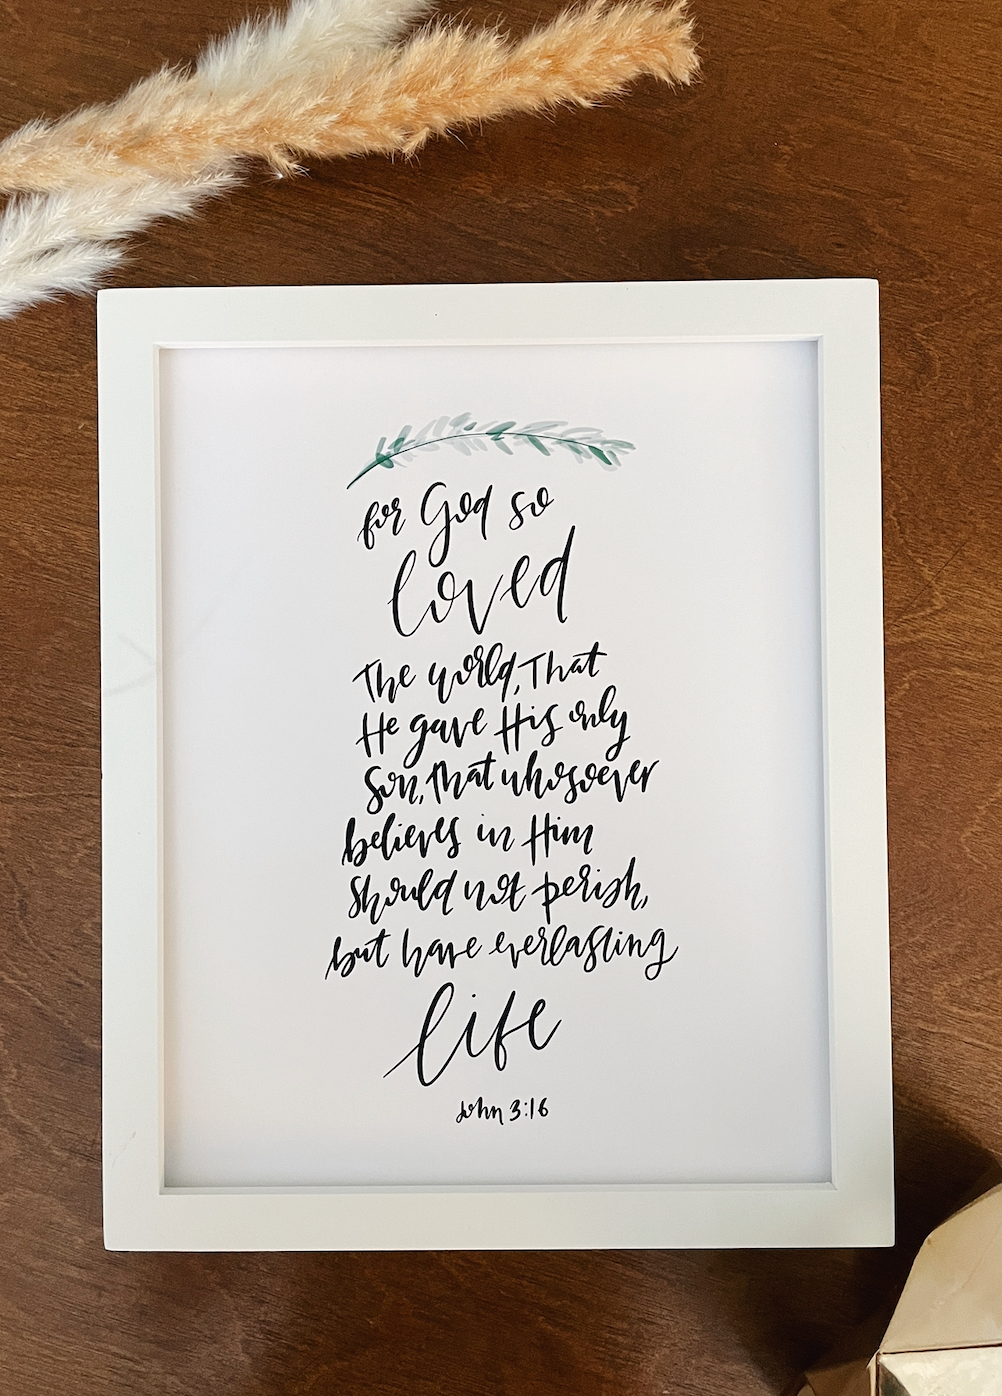 for God so
loved
The world, That
He gave His only
Son, That whosoever
believes in Him
should not perish,
but have everlasting
life
John 3:16